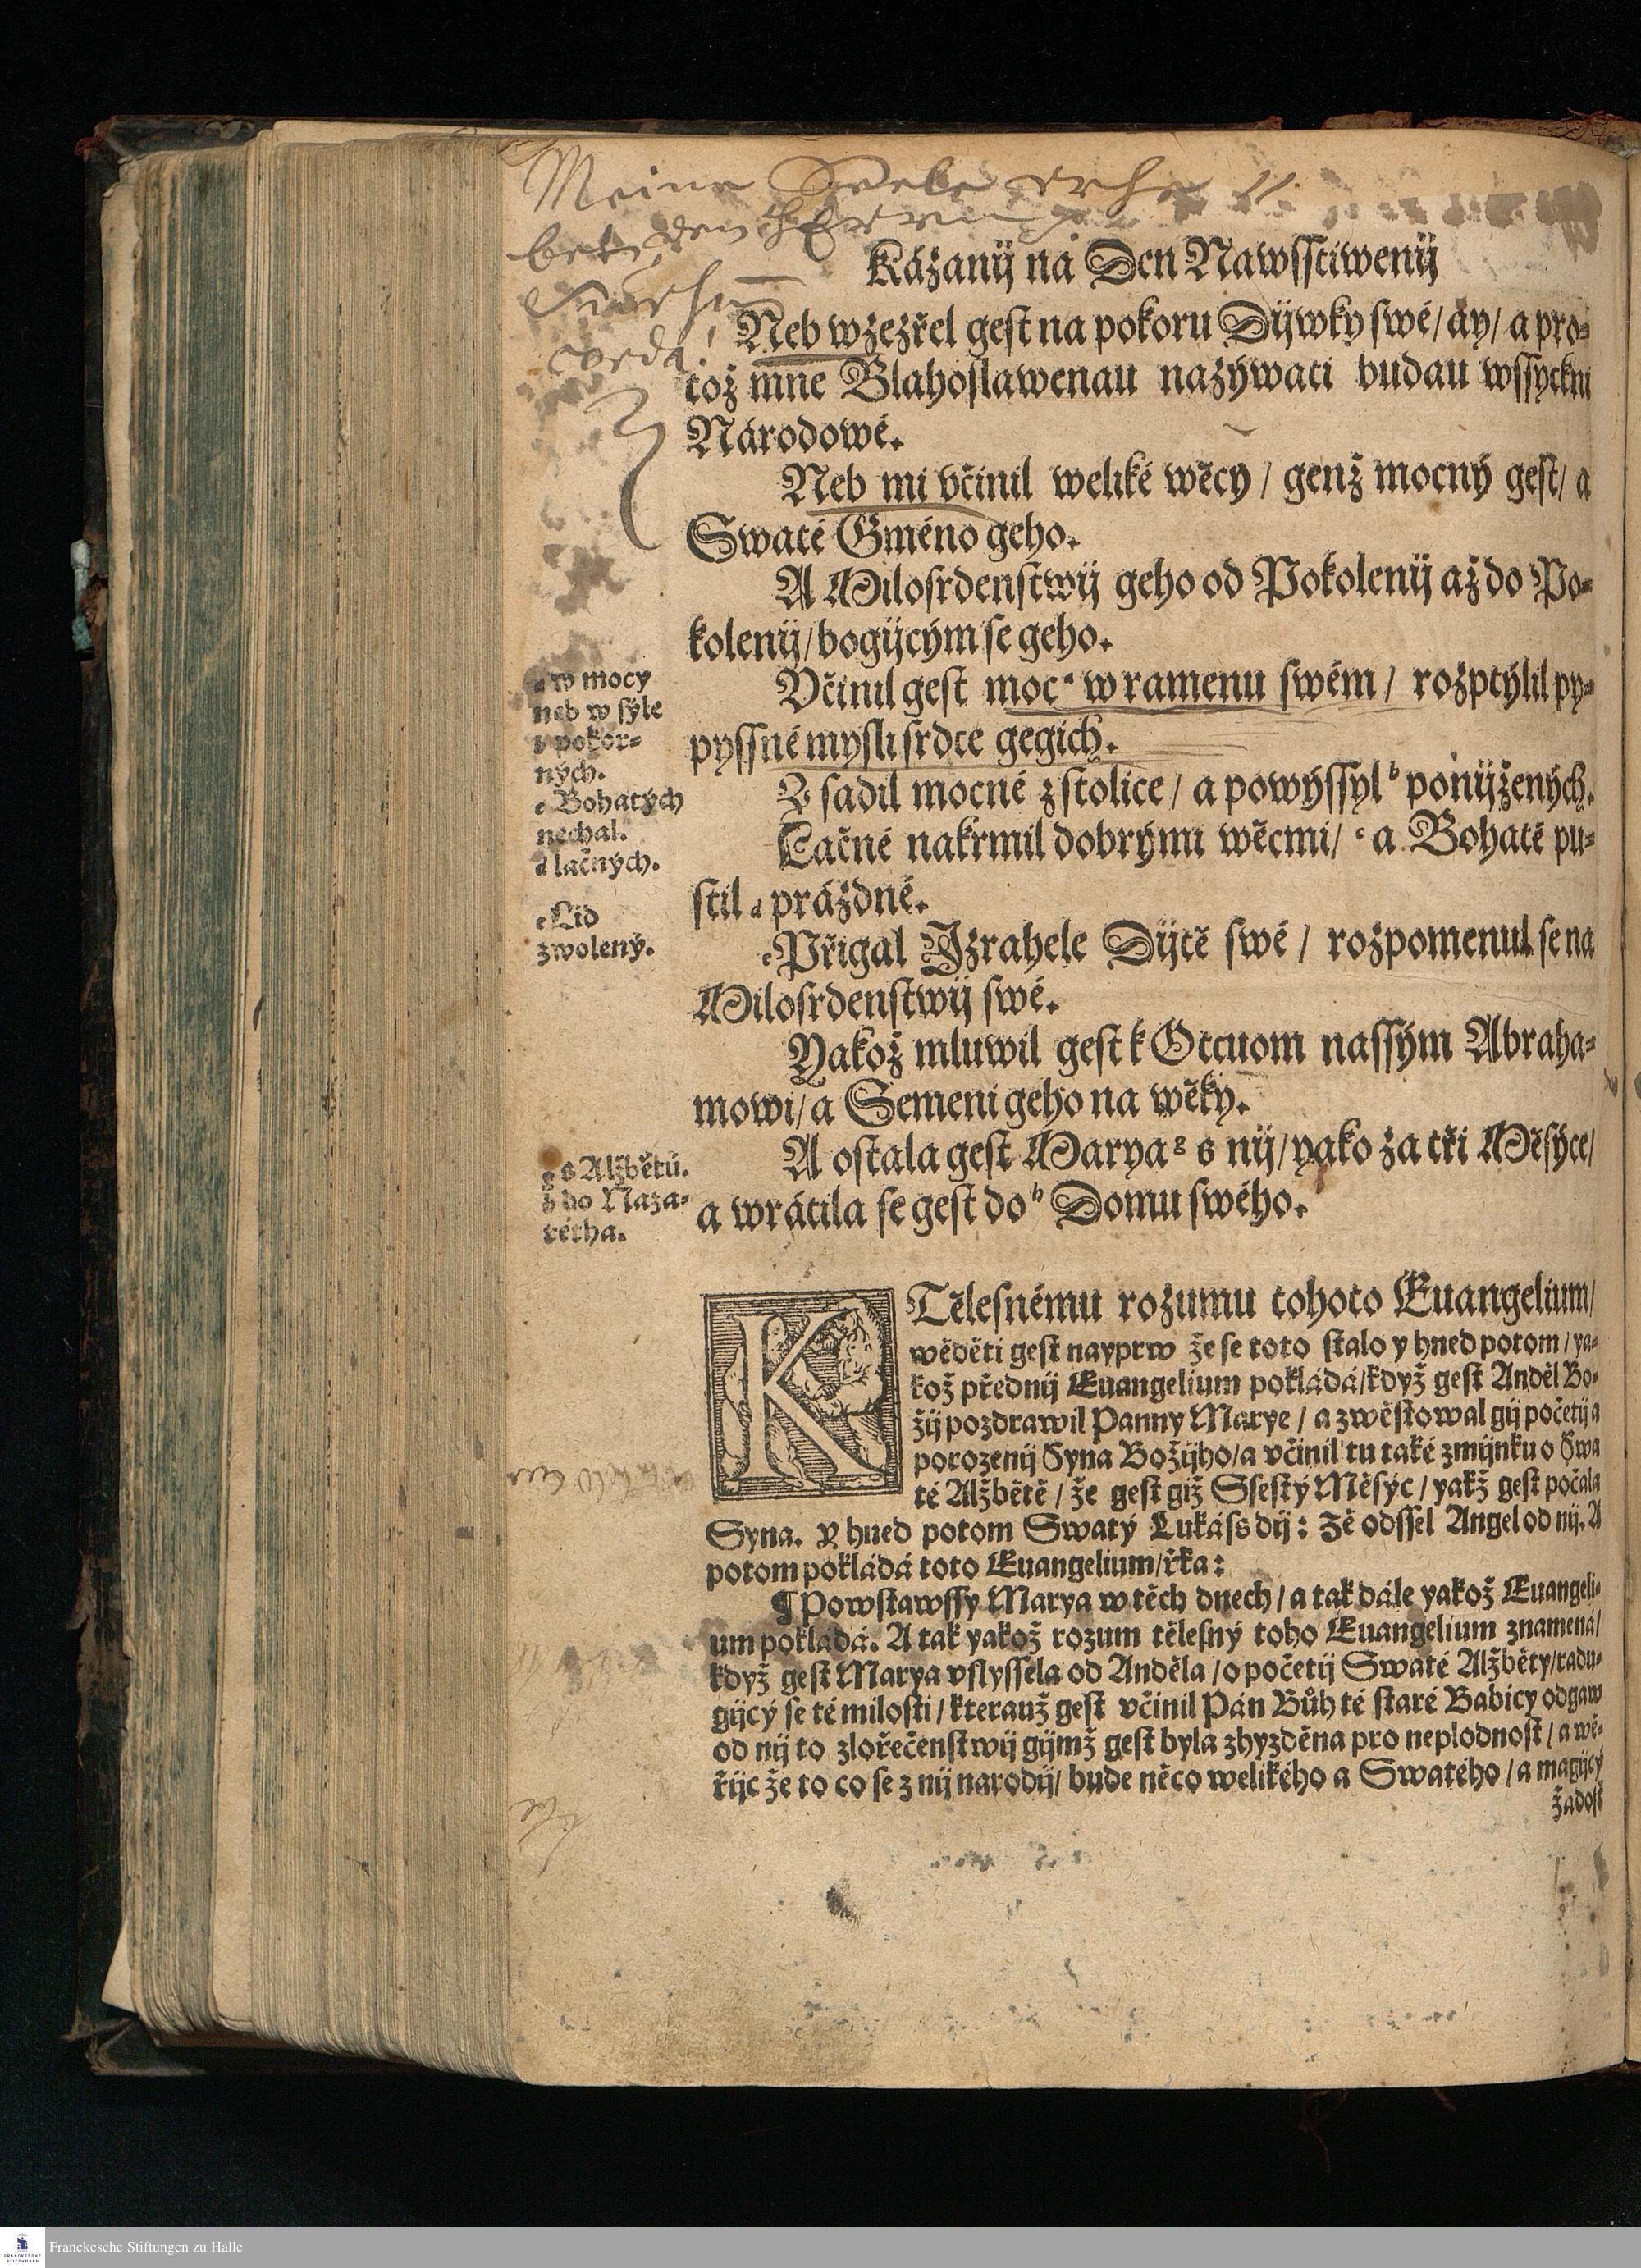 Meine Seele erhe
bet den HErrn
Sursu̅
corda!
Kázanij ná Den Nawsstiwenij
Neb wzezřel gest na pokoru Dijwky swé / áy / a pro-
tož mne Blahoslawenau nazýwati budau wssyckni
Národowé.
Neb mi včinil weliké wěcy / genž mocný gest / a
Swaté Gméno geho.
A Milosrdenstwij geho od Pokolenij až do Po-
kolenij / bogijcým se geho.
Včinil gest moc a w ramenu swém / rozptýlil py-
pyssné mysli srdce gegich.
Z sadil mocné z stolice / a powýssyl b ponijžených.
Lačné nakrmil dobrými wěcmi / c a Bohaté pu-
stil d prázdné.
e Přigal Izrahele Dijtě swé / rozpomenul se na
Milosrdenstwij swé.
Yakož mluwil gest k Otcuom nassým Abraha-
mowi / a Semeni geho na wěky.
A ostala gest Marya g s nij / yako za tři Měsýce /
a wrátila se gest do h Domu swého.
a w mocy
neb w sýle
b pokor-
ných.
c Bohatých
nechal.
d lačných.
e Lid
zwolený.
g s Alžbětú.
h do Naza-
rétha.
K Tělesnému rozumu tohoto Euangelium /
wěděti gest nayprw že se toto stalo y hned potom / ya-
kož přednij Euangelium pokládá / když gest Anděl Bo-
žij pozdrawil Panny Marye / a zwěstowal gij početij a
porozenij Syna Božijho / a včinil tu také zmijnku o Swa
té Alžbětě / že gest giž Ssestý Měsýc / yakž gest počala
Syna. Y hned potom Swatý Lukáss dij: Zě odssel Angel od nij. A
potom pokládá toto Euangelium / řka:
¶ Powstawssy Marya w těch dnech / a tak dále yakož Euangeli-
um pokládá. A tak yakož rozum tělesný toho Euangelium znamená /
když gest Marya vslyssela od Anděla / o početij Swaté Alžběty / radu-
gijcý se té milosti / kterauž gest včinil Pán Bůh té staré Babicy odgaw
od nij to zlořečenstwij gijmž gest byla zhyzděna pro neplodnost / a wě-
řijc že to co se z nij narodij / bude něco welikého a Swatého / a magijcý
žadost
Franckesche Stiftungen zu Halle
FRANCKESCHE
STIFTUNGEN